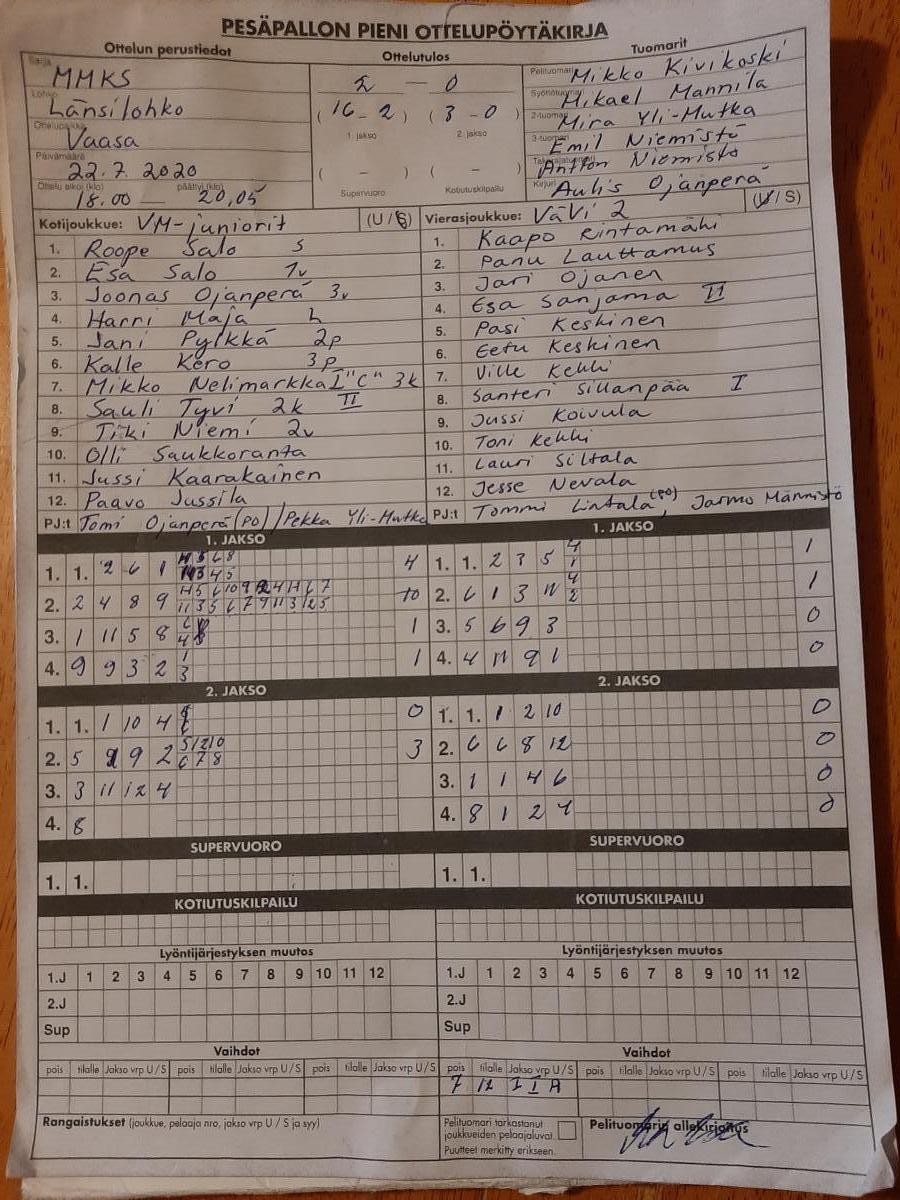 PESÄPALLON PIENI OTTELUPÖYTÄKIRJA
Ottelun perustiedot Ottelutulos Tuomarit
Sarja MMKS 2 — 0 Pelituomari Mikko Kivikoski
Lohko Länsilohko (16 - 2) (3 - 0) Syöttötuomari Mikael Mannila
Ottelupaikka Vaasa 1. jakso 2. jakso 2-tuomari Mira Yli-Hutka
Päivämäärä 22.7.2020 3-tuomari Emil Niemistö
( - ) ( - ) Takarajatuomari Antton Niemistö
Ottelu alkoi (klo) 18.00 — päättyi (klo) 20,05 Supervuoro Kotiutuskilpailu Kirjuri Aulis Ojanperä
Kotijoukkue: VM-juniorit (U/S) Vierasjoukkue: VäVi 2 (U/S)
1. Roope Salo S 1. Kaapo Rintamäki
2. Esa Salo 1v 2. Panu Lauttamus
3. Joonas Ojanperä 3v 3. Jari Ojanen
4. Harri Maja L 4. Esa Sanjama II
5. Jani Pylkkä 2p 5. Pasi Keskinen
6. Kalle Kero 3p 6. Eetu Keskinen
7. Mikko Nelimarkka I "C" 3k 7. Ville Kehki
8. Sauli Tyvi 2k II 8. Santeri Sillanpää I
9. Tiki Niemi 2v 9. Jussi Koivula
10. Olli Saukkoranta 10. Toni Kehki
11. Jussi Kaarakainen 11. Lauri Siltala
12. Paavo Jussila 12. Jesse Nevala
PJ:t Tomi Ojanperä (PO) / Pekka Yli-Hutka PJ:t Tommi Lintala (PO), Jarmo Männistö
1. JAKSO 1. JAKSO
1. 1. 2 6 1 4 1. 1. 2 3 5 4 1 1
2. 2 4 8 9 10 2. 6 1 3 11 4 2 1
3. 1 11 5 8 1 3. 5 6 9 3 0
4. 9 9 3 2 1 3 1 4. 4 11 9 1 0
2. JAKSO 2. JAKSO
1. 1. 1 10 4 0 1. 1. 1 2 10 0
2. 5 9 9 2 5 12 10 6 7 8 3 2. 6 6 8 12 0
3. 3 11 12 4 3. 1 1 4 6 0
4. 8 4. 8 1 2 4 0
SUPERVUORO SUPERVUORO
1. 1. 1. 1.
KOTIUTUSKILPAILU KOTIUTUSKILPAILU
Lyöntijärjestyksen muutos Lyöntijärjestyksen muutos
1.J 1 2 3 4 5 6 7 8 9 10 11 12 1.J 1 2 3 4 5 6 7 8 9 10 11 12
2.J 2.J
Sup Sup
Vaihdot Vaihdot
pois tilalle Jakso vrp U/S pois tilalle Jakso vrp U/S pois tilalle Jakso vrp U/S pois tilalle Jakso vrp U/S pois tilalle Jakso vrp U/S pois tilalle Jakso vrp U/S
7 12 I I A
Rangaistukset (joukkue, pelaaja nro, jakso vrp U / S ja syy) Pelituomari tarkastanut Pelituomarin allekirjoitus
joukkueiden pelaajaluvat.
Puutteet merkitty erikseen.